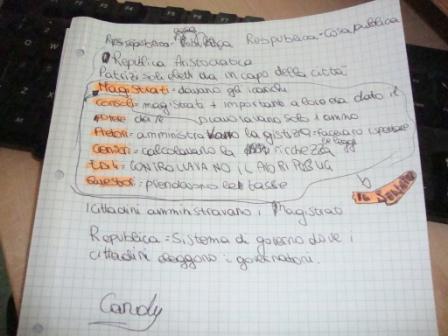 Respubblica = Cosa pubblica
Republica Aristocratica
Patrizi soli eletti da in capo della città
Magistrati = davano gli incarichi
Consoli = magistrati + importante a loro era dato il
potere dei re duravano solo 1 anno
Pretori = amministravano la giustizia = facevano rispettare
le leggi
Censori = calcolavano la ricchezza
Edili = CONTROLLAVANO I LAVORI PUBLICI
Questori = prendevano le tasse
IL SENATO
I cittadini amministravano i Magistrati
Republica = Sistema di governo dove i
cittadini eleggono i governatori.
Candy